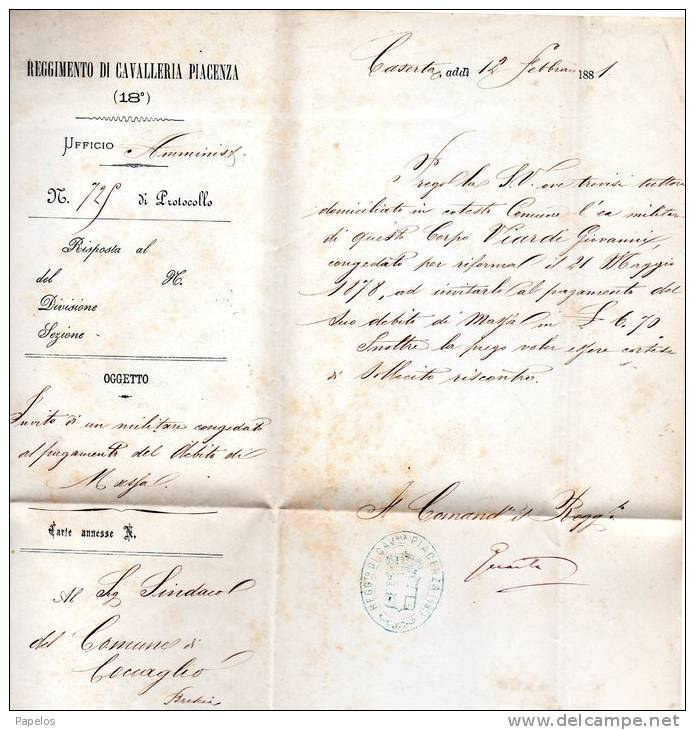 REGGIMENTO DI CAVALLERIA PIACENZA
(18°)
UFFICIO Amminis
N. 725 di Protocollo
Risposta al
del N.
Divisione
Sezione
OGGETTO
Invito di un militare congedato
al pagamento del debito di
Massa
Carte annesse N.
Al Sig Sindaco
del Comune di
Coccaglio
Brescia
Caserta addì 12 Febbraio 1881.
Prego la S.V. ove trovisi tuttora
domiciliato in cotesto Comune l'ex militar
di questo Corpo Viardi Giovanni,
congedato per riforma il 21 Maggio
1878, ad invitarlo al pagamento del
suo debito di Massa in £ 6.70
Inoltre la prego voler essere cortese
di sollecito riscontro.
Il Comand.te il Regg.to
REGG.TO DI CAV.RIA PIACENZA (18°)
Papelos
www.delcampe.net